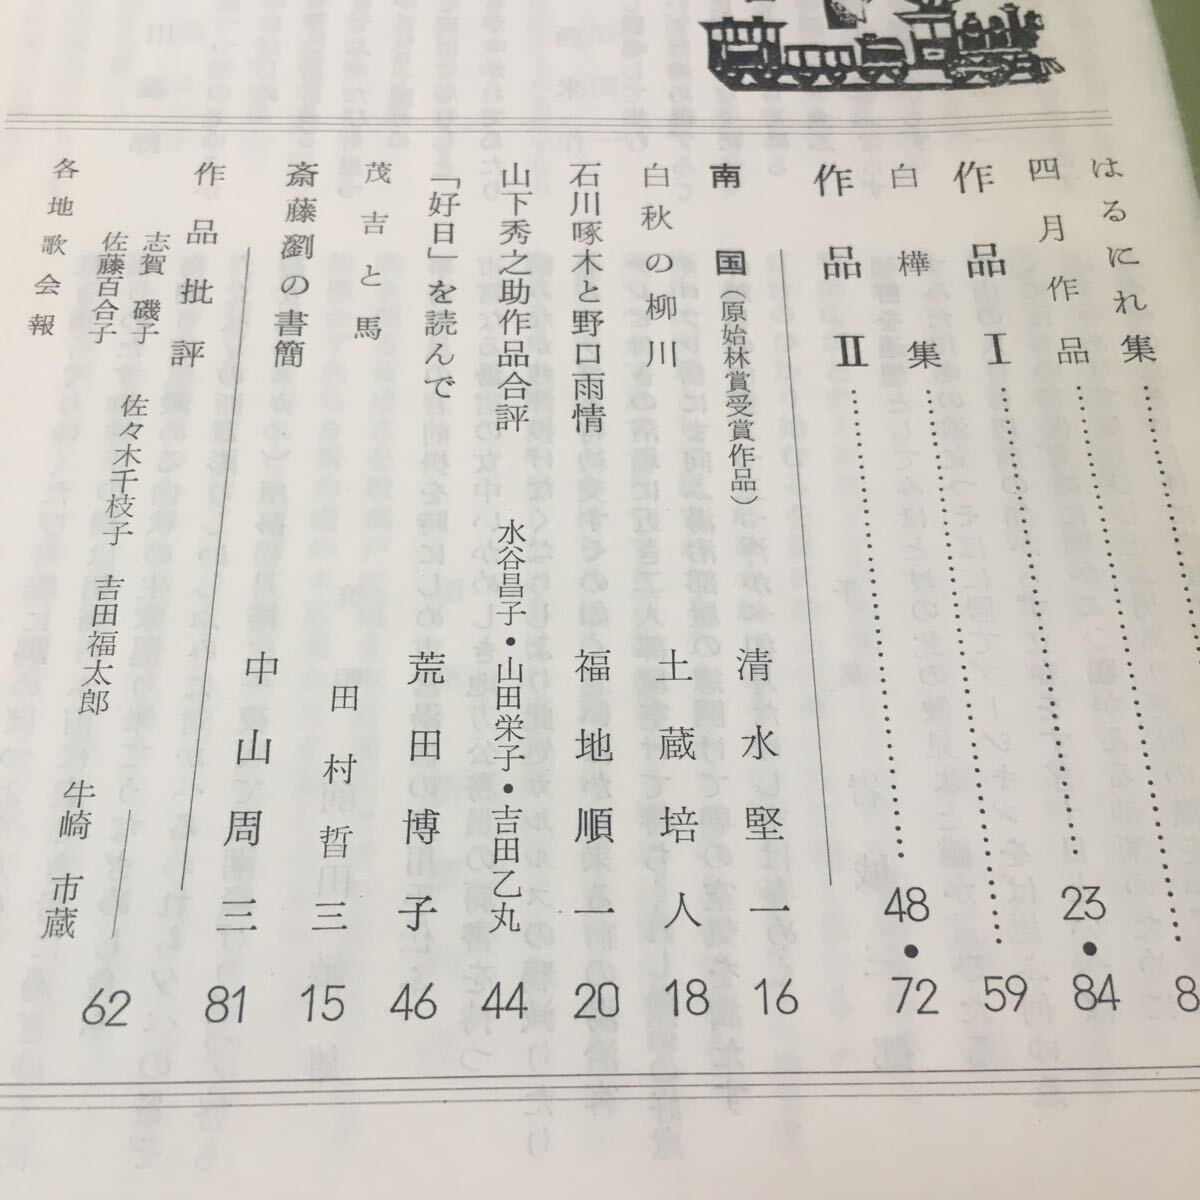 はるにれ集 8
四月作品 23・84
作品Ⅰ 59
白樺集 48・72
作品Ⅱ
南国（原始林賞受賞作品） 清水堅一 16
白秋の柳川 土蔵培人 18
石川啄木と野口雨情 福地順一 20
山下秀之助作品合評 水谷昌子・山田栄子・吉田乙丸 44
「好日」を読んで 荒田博子 46
茂吉と馬 田村哲三 15
斎藤瀏の書簡 中山周三 81
作品批評
志賀磯子 佐々木千枝子
佐藤百合子 吉田福太郎 牛崎市蔵 62
各地歌会報